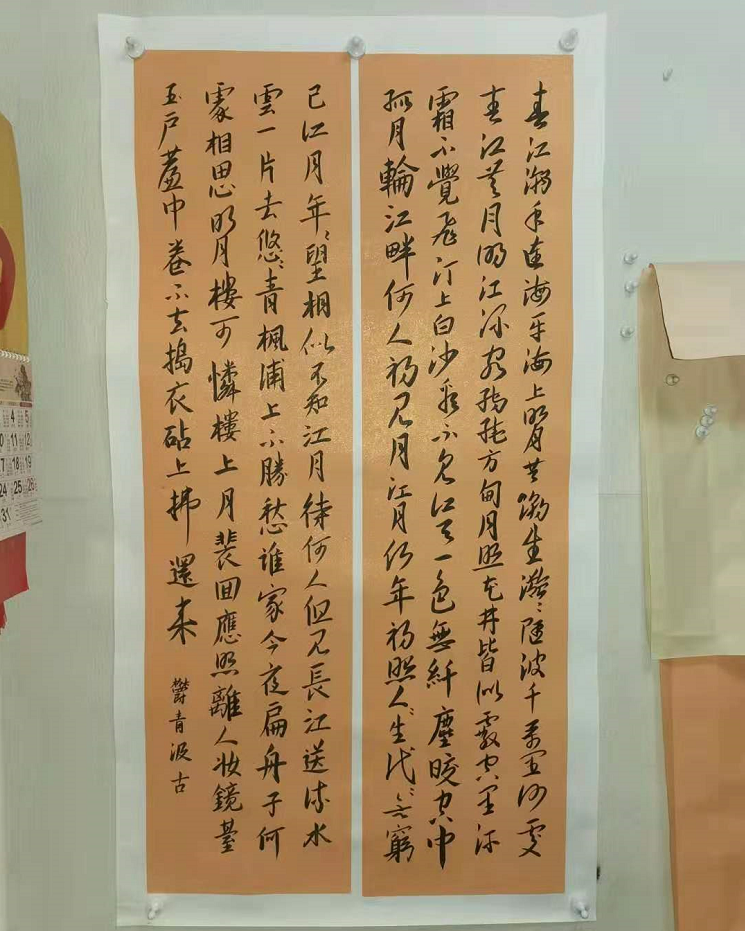 春江潮水連海平海上明月共潮生灔〻隨波千萬里何處
春江無月明江流宛轉繞芳甸月照花林皆似霰空里流
霜不覺飛汀上白沙看不見江天一色無纤塵皎空中
孤月輪江畔何人初見月江月何年初照人〻生代〻無窮
已江月年〻望相似不知江月待何人但見長江送流水
雲一片去悠〻青楓浦上不勝愁誰家今夜扁舟子何
處相思明月樓可憐樓上月裴回應照離人妝鏡臺
玉戶簾中卷不去搗衣砧上拂還来
鬱青汲古